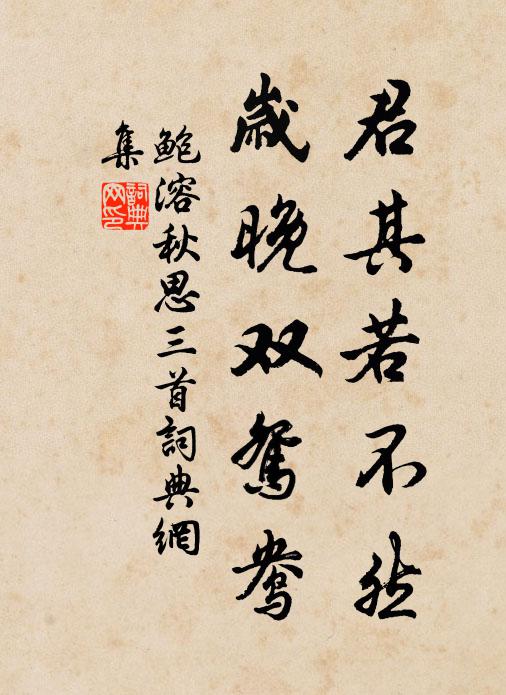 君其若不然
歲晚双鴛鴦
鲍溶秋思三首詞典網
集
詞典網印